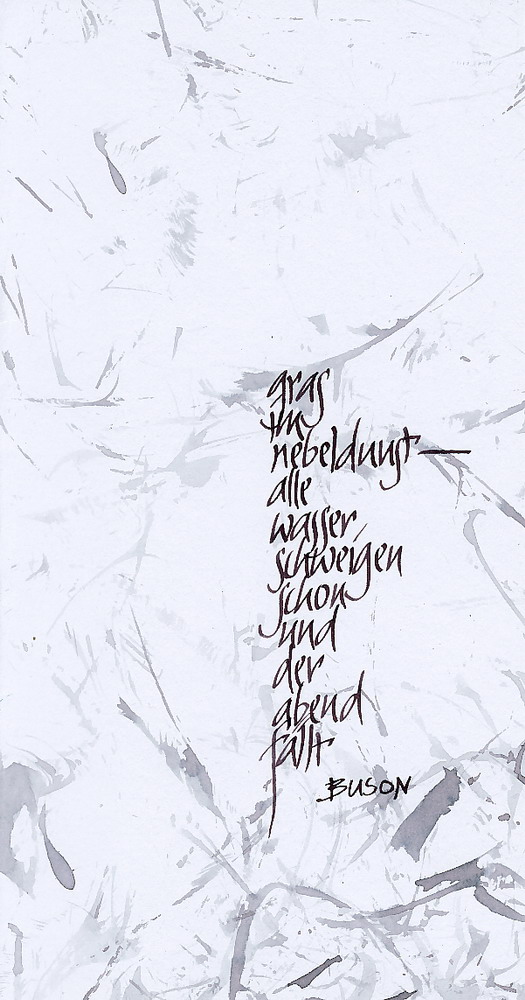 gras
im
nebeldunst —
alle
wasser
schweigen
schon
und
der
abend
fällt
BUSON